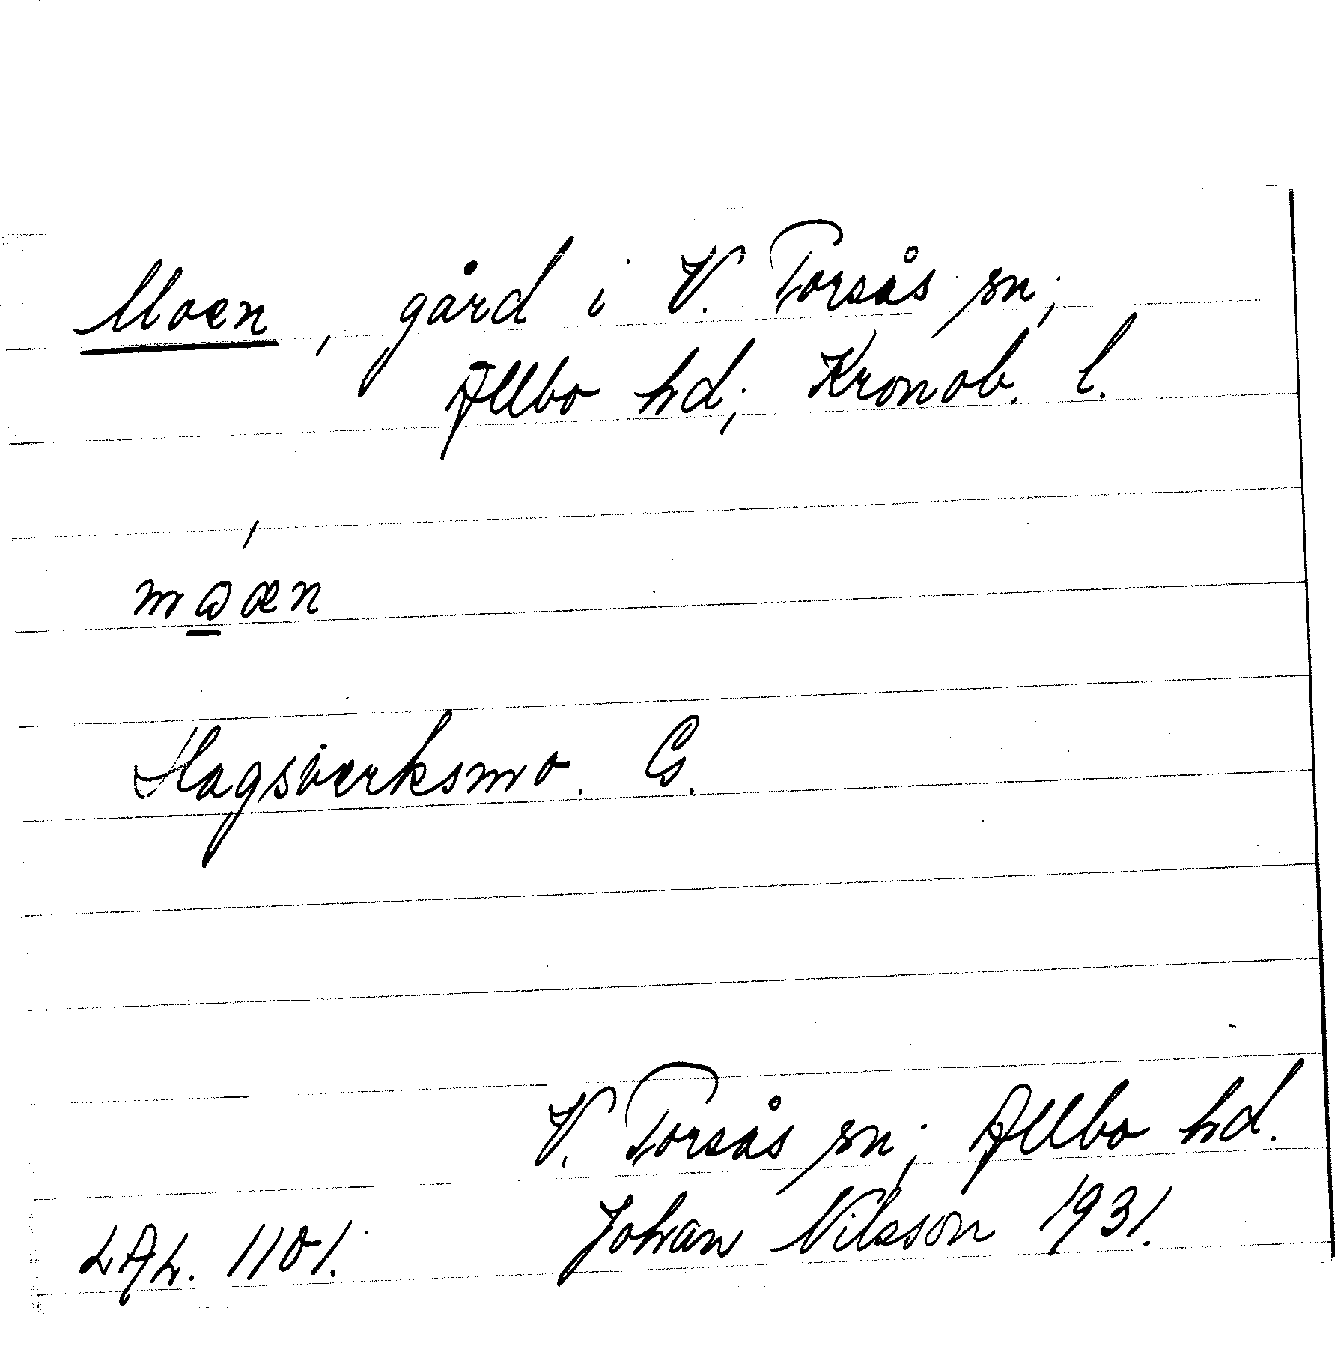 Moen, gård i V. Torsås sn;
Allbo hd; Kronob. l.
mó̲æn
Hagsåerksmo. G.
V. Torsås sn; Allbo hd.
LAL. 1101. Johan Nilsson 1931.